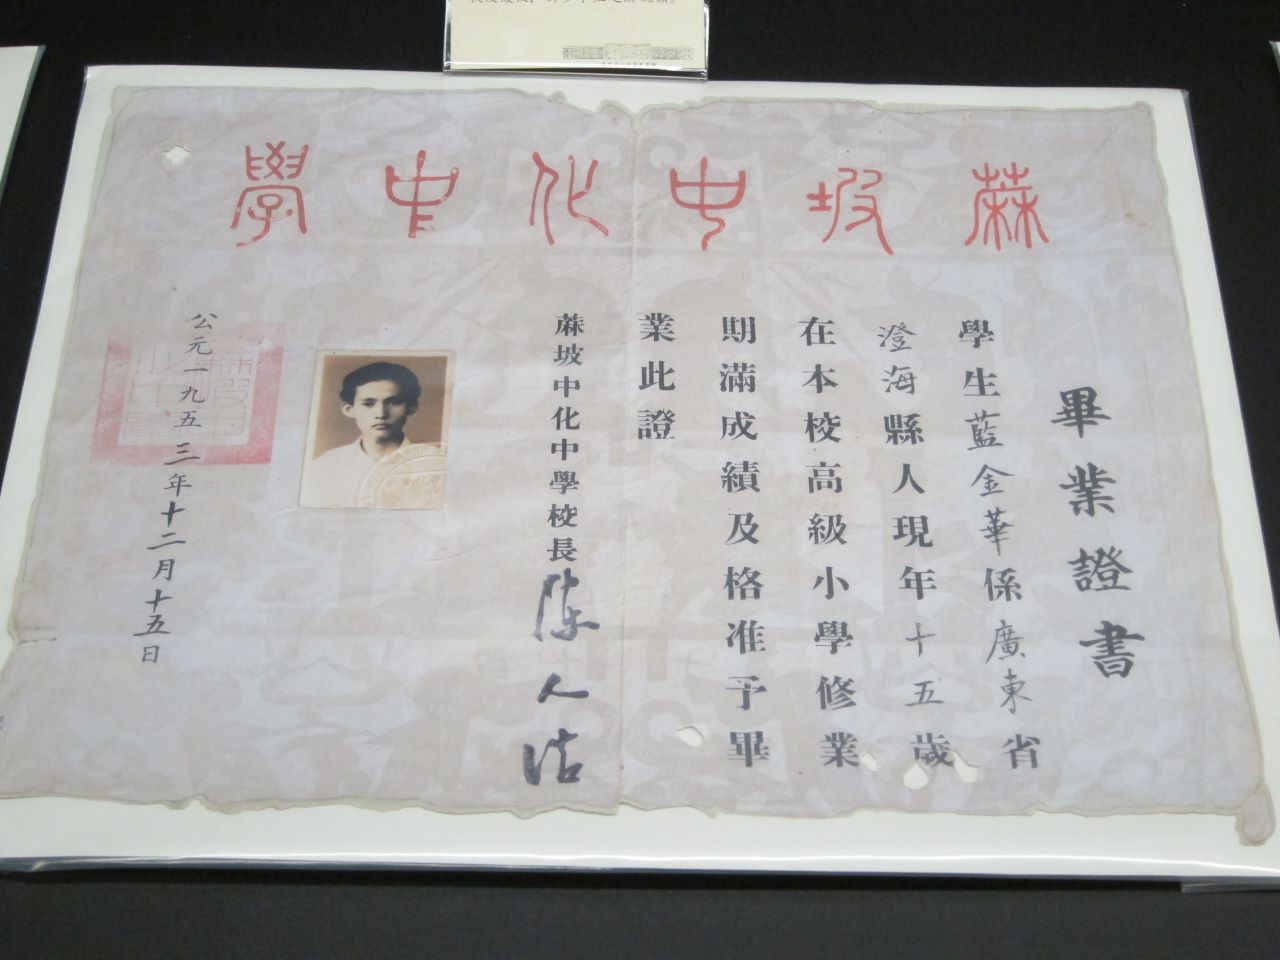 蔴坡中化中學
畢業證書
學生藍金華係廣東省
澄海縣人現年十五歲
在本校高級小學修業
期滿成績及格准予畢
業此證
蔴坡中化中學校長陳人浩
公元一九五三年十二月十五日